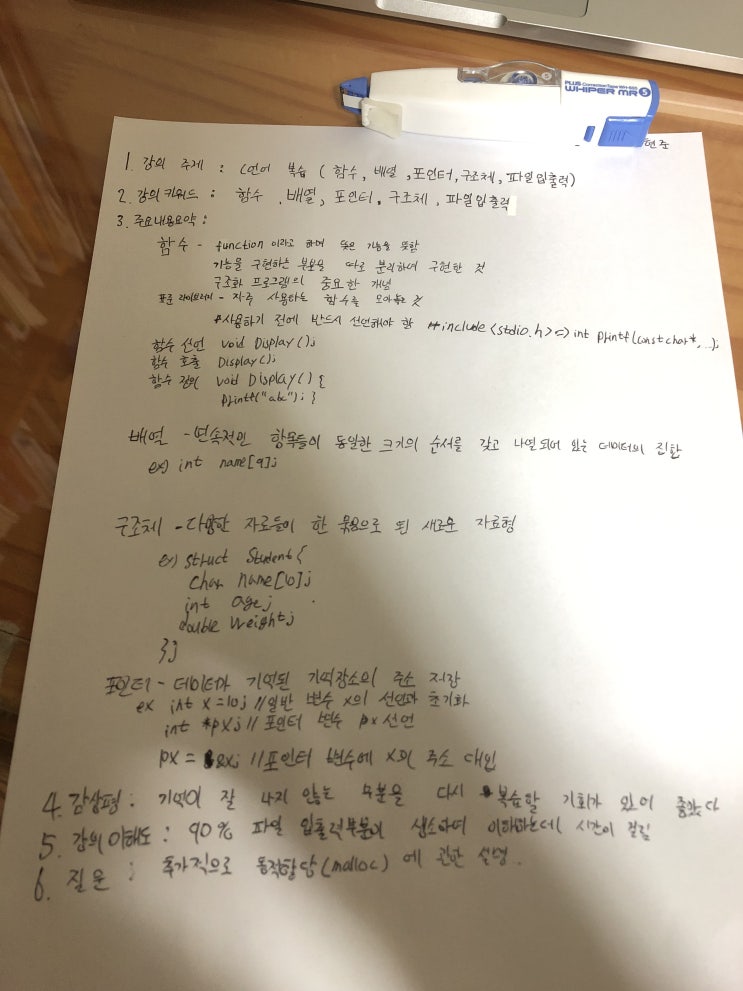 PLUS Correction Tape WH-605
WHIPER MR 5
현준
1. 강의 주제 : C언어 복습 ( 함수, 배열, 포인터, 구조체, 파일입출력)
2. 강의키워드 : 함수, 배열, 포인터, 구조체, 파일입출력
3. 주요내용요약 :
함수 - function 이라고 하며 기능을 뜻함
기능을 구현하는 부분을 따로 분리하여 구현한 것
구조화 프로그램의 중요한 개념
표준 라이브러리 - 자주 사용하는 함수를 모아놓은 것
#사용하기 전에 반드시 선언해야 함 #include <stdio.h> => int printf(const char*, ...);
함수 선언 void Display();
함수 호출 Display();
함수 정의 void Display() {
printf("abc"); }
배열 - 연속적인 항목들이 동일한 크기의 순서를 갖고 나열되어 있는 데이터의 집합
ex) int name[9];
구조체 - 다양한 자료들이 한 묶음으로 된 새로운 자료형
ex) struct Student{
char name[10];
int age;
double weight;
};
포인터 - 데이터가 기억된 기억장소의 주소 저장
ex int x=10; //일반 변수 x의 선언과 초기화
int *px; //포인터 변수 px 선언
px = &x; //포인터 변수에 x의 주소 대입
4. 감상평 : 기억이 잘 나지 않는 부분을 다시 복습할 기회가 있어 좋았다
5. 강의이해도 : 90% 파일 입출력부분이 생소하여 이해하는데 시간이 걸림
6. 질문 : 추가적으로 동적할당(malloc) 에 관한 설명.